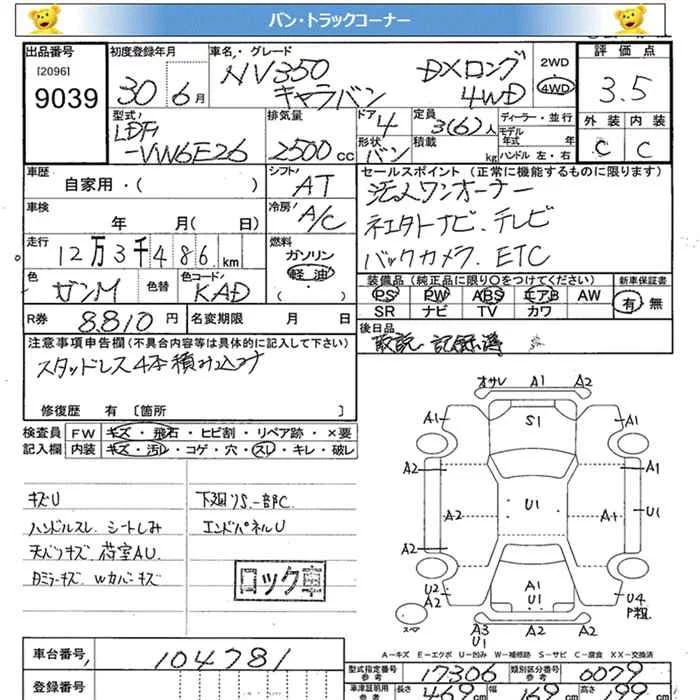 バン・トラックコーナー
出品番号 初度登録年月 車名・グレード 評価点
[2096]
9039
30 6月
NV350 DXロング
キャラバン 4WD
2WD
4WD
3.5
型式 排気量 ドア 定員 ディーラー・並行
LDF
-VW6E26
2500cc
4
3(6)人
モデル年式 年
形状 積載
バン kg
ハンドル 左・右
外装 内装
C C
車歴
自家用・( )
シフト
AT
セールスポイント(正常に機能するものに限ります)
法人ワンオーナー
ナビ、テレビ
バックカメラ、ETC
車検
年 月( 日)
冷房
A/C
走行
12万3千486km
燃料
ガソリン
軽油
・
( )
色 色替 色コード
ギンM KAD
装備品(純正品に限り〇をつけてください) 新車保証書
PS PW ABS エアB AW
SR ナビ TV カワ
有 無
R券 8.810円 名変期限 月 日
後日品
取説、記録簿
注意事項申告欄(不具合内容等は具体的に記入して下さい)
スタッドレス4本積み込み
修復歴 有 〔箇所 〕
検査員 FW キズ・飛石・ヒビ割・リペア跡・×要
記入欄 内装 キズ・汚レ・コゲ・穴・スレ・キレ・破レ
キズU
ハンドルスレ、シートしみ
天バンキズ、荷室AU
Wカバーキズ
下廻りS、一部C
エンドパネルU
ロック車
オサレ A1 A2
A1 S1 A1
A2 A1
A2 U1 A1 U1
A2 A2
U2
A2
A1
U1
U4
P粗
スペア
A3
U1
A1 A2
A-キズ E-エクボ U-凹み W-補修跡 S-サビ C-腐食 XX-交換済
車台番号 104781
登録番号
型式指定番号 参考 17306 類別区分番号 参考 0079
車庫証明用 参考 長さ 469cm 幅 169cm 高さ 199cm